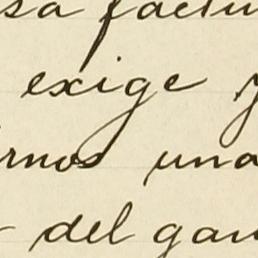 sa factu
exige y
rnos una
del gan